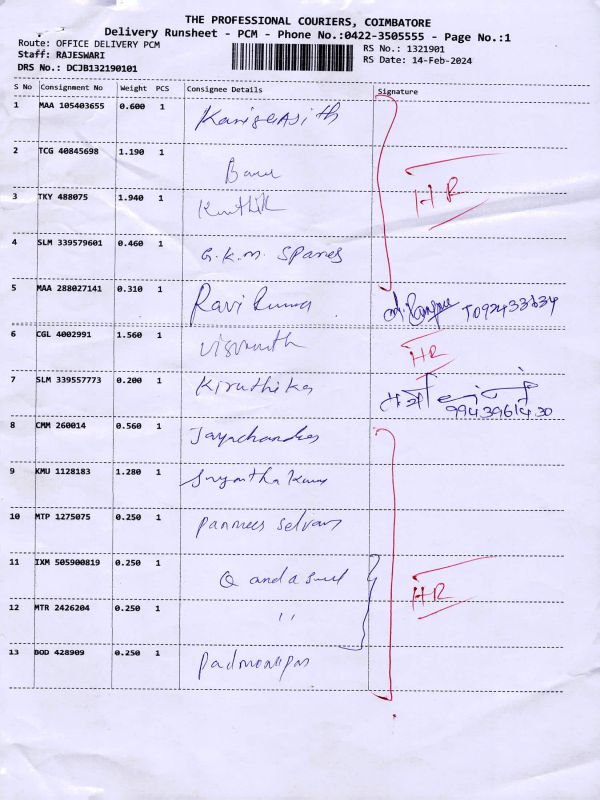 THE PROFESSIONAL COURIERS, COIMBATORE
Delivery Runsheet - PCM - Phone No.:0422-3505555 - Page No.:1
Route: OFFICE DELIVERY PCM
Staff: RAJESWARI
DRS No.: DCJB132190101
RS No.: 1321901
RS Date: 14-Feb-2024
S No Consignment No Weight PCS Consignee Details Signature
1 MAA 105403655 0.600 1
2 TCG 40845698 1.190 1 Banu
HR
3 TKY 488075 1.940 1 Karthik
4 SLM 339579601 0.460 1 G.K.M. Spares
5 MAA 288027141 0.310 1 Ravi Kumar
6 CGL 4002991 1.560 1 Viswanath HR
7 SLM 339557773 0.200 1 Kiruthika 9943961430
8 CMM 260014 0.560 1 Jayachandran
9 KMU 1128183 1.280 1
10 MTP 1275075 0.250 1 Panneer Selvam
11 IXM 505900819 0.250 1 HR
12 MTR 2426204 0.250 1 ''
13 BOD 428909 0.250 1